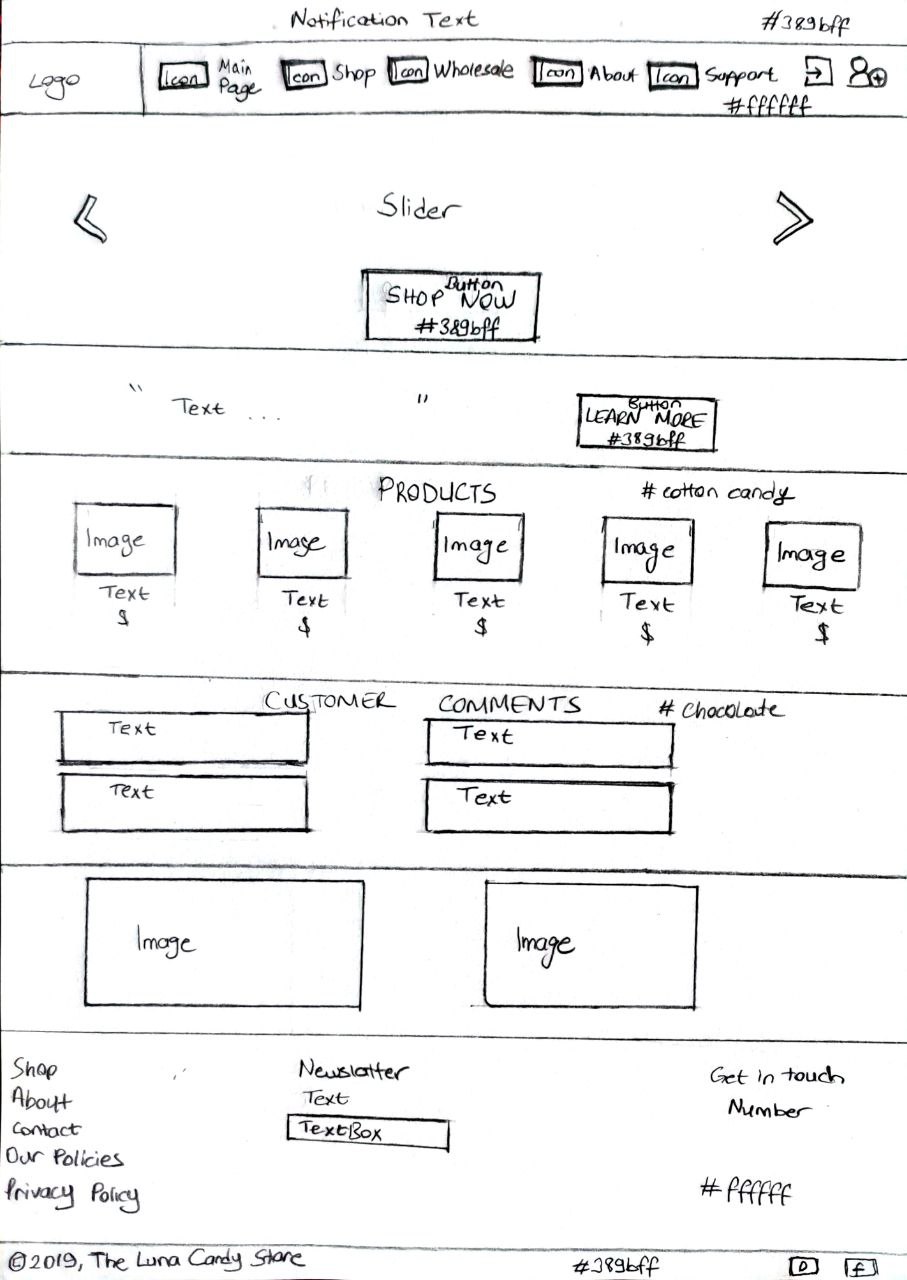 Notification Text #389bff
Logo
Icon Main Page
Icon Shop
Icon Wholesale
Icon About
Icon Support
#ffffff
Slider
Button
SHOP NOW
#389bff
" Text ... "
Button
LEARN MORE
#389bff
PRODUCTS # cotton candy
Image Image Image Image Image
Text Text Text Text Text
$ $ $ $ $
CUSTOMER COMMENTS # Chocolate
Text Text
Text Text
Image Image
Shop
About
Contact
Our Policies
Privacy Policy
Newslatter
Text
TextBox
Get in touch
Number
#ffffff
©2019, The Luna Candy Store #389bff f